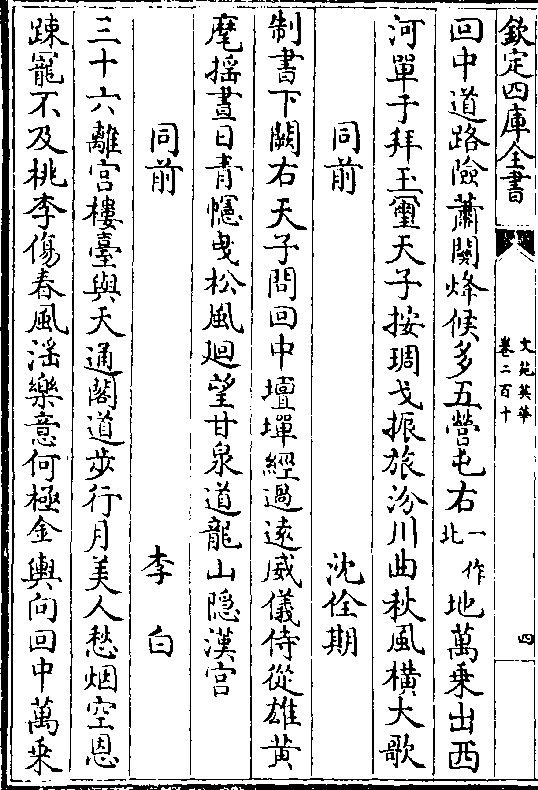 欽定四庫全書
文苑英華
卷二百十
四
回中道路險蕭關烽候多五營屯右一作北地萬乘出西
河單于拜玉璽天子按琱戈振旅汾川曲秋風橫大歌
同前 沈佺期
制書下關右天子問回中壇墠經過遠威儀侍從雄黄
麾揺晝日青幰曳松風廻望甘泉道龍山隠漢宫
同前 李白
三十六離宫樓臺與天通閣道歩行月美人愁烟空恩
踈寵不及桃李傷春風滛樂意何極金輿向回中萬乗